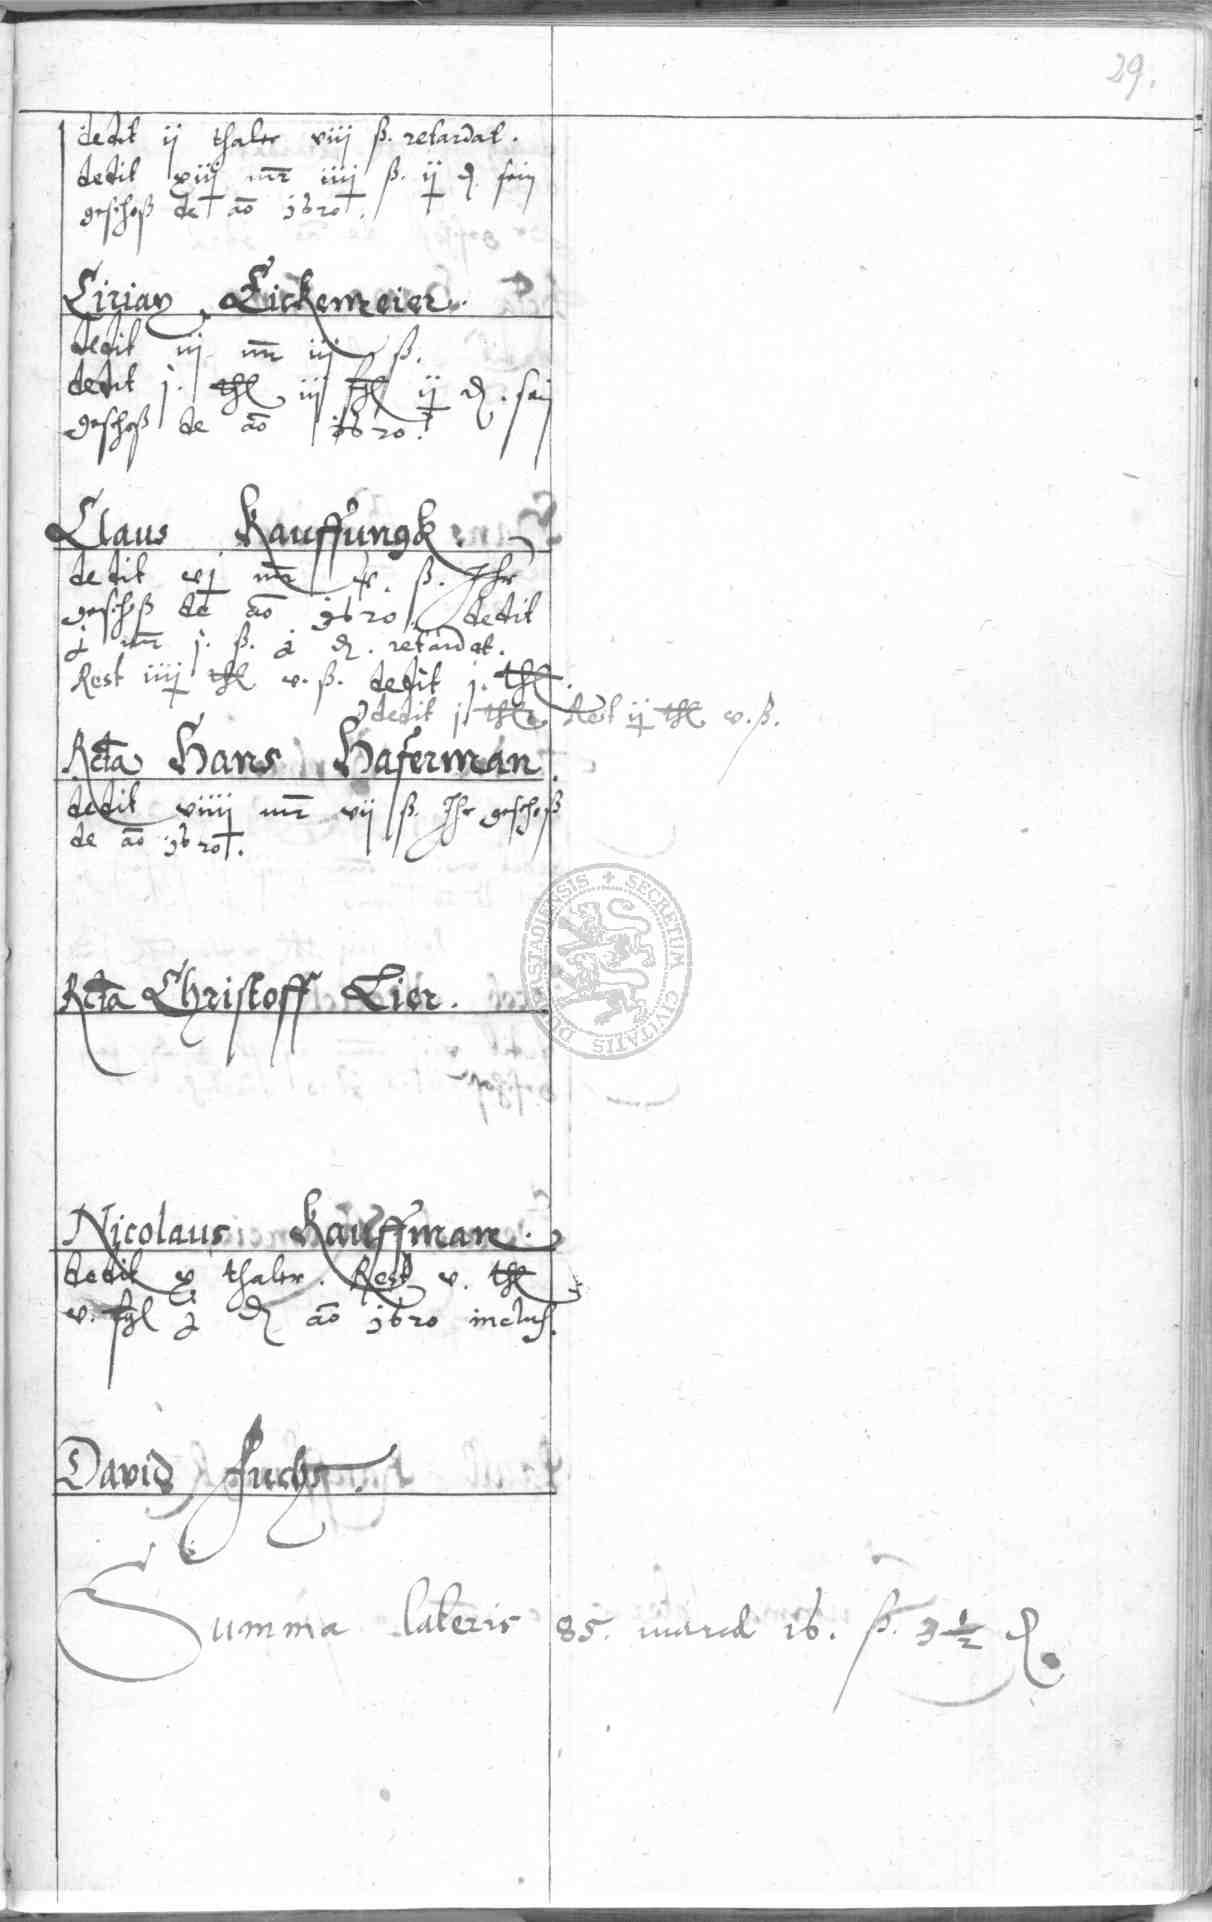 29.
dedit ij thaler viiij ß. retardat.
dedit xiij mr iiij ß. ij d. sein
geschoß de ao 1620.
Cirian Eickemeier.
dedit iij mr iij ß.
dedit j. thl iij fgl ij d. sein
geschoß de ao 1620.
Claus Kauffungk.
dedit vj mr v. ß. Ihr
geschoß de ao 1620. dedit
mr j. ß. d. retardat.
Rest iiij thl v. ß. dedit j. thl.
dedit j thlr Rest ij thl v. ß.
Rcta Hans Haferman.
dedit viiij mr vij ß. Ihr geschoß
de ao 1620.
Rcta Christoff Lier.
Nicolaus Kauffman.
dedit v thaler. Rest v. thl
v. fgl d ao 1620 inclus.
David Fuchs.
Summa lateris 85. marck 16. ß. 3 1/2 d.
SECRETUM CIVITATIS DU STADIENSIS